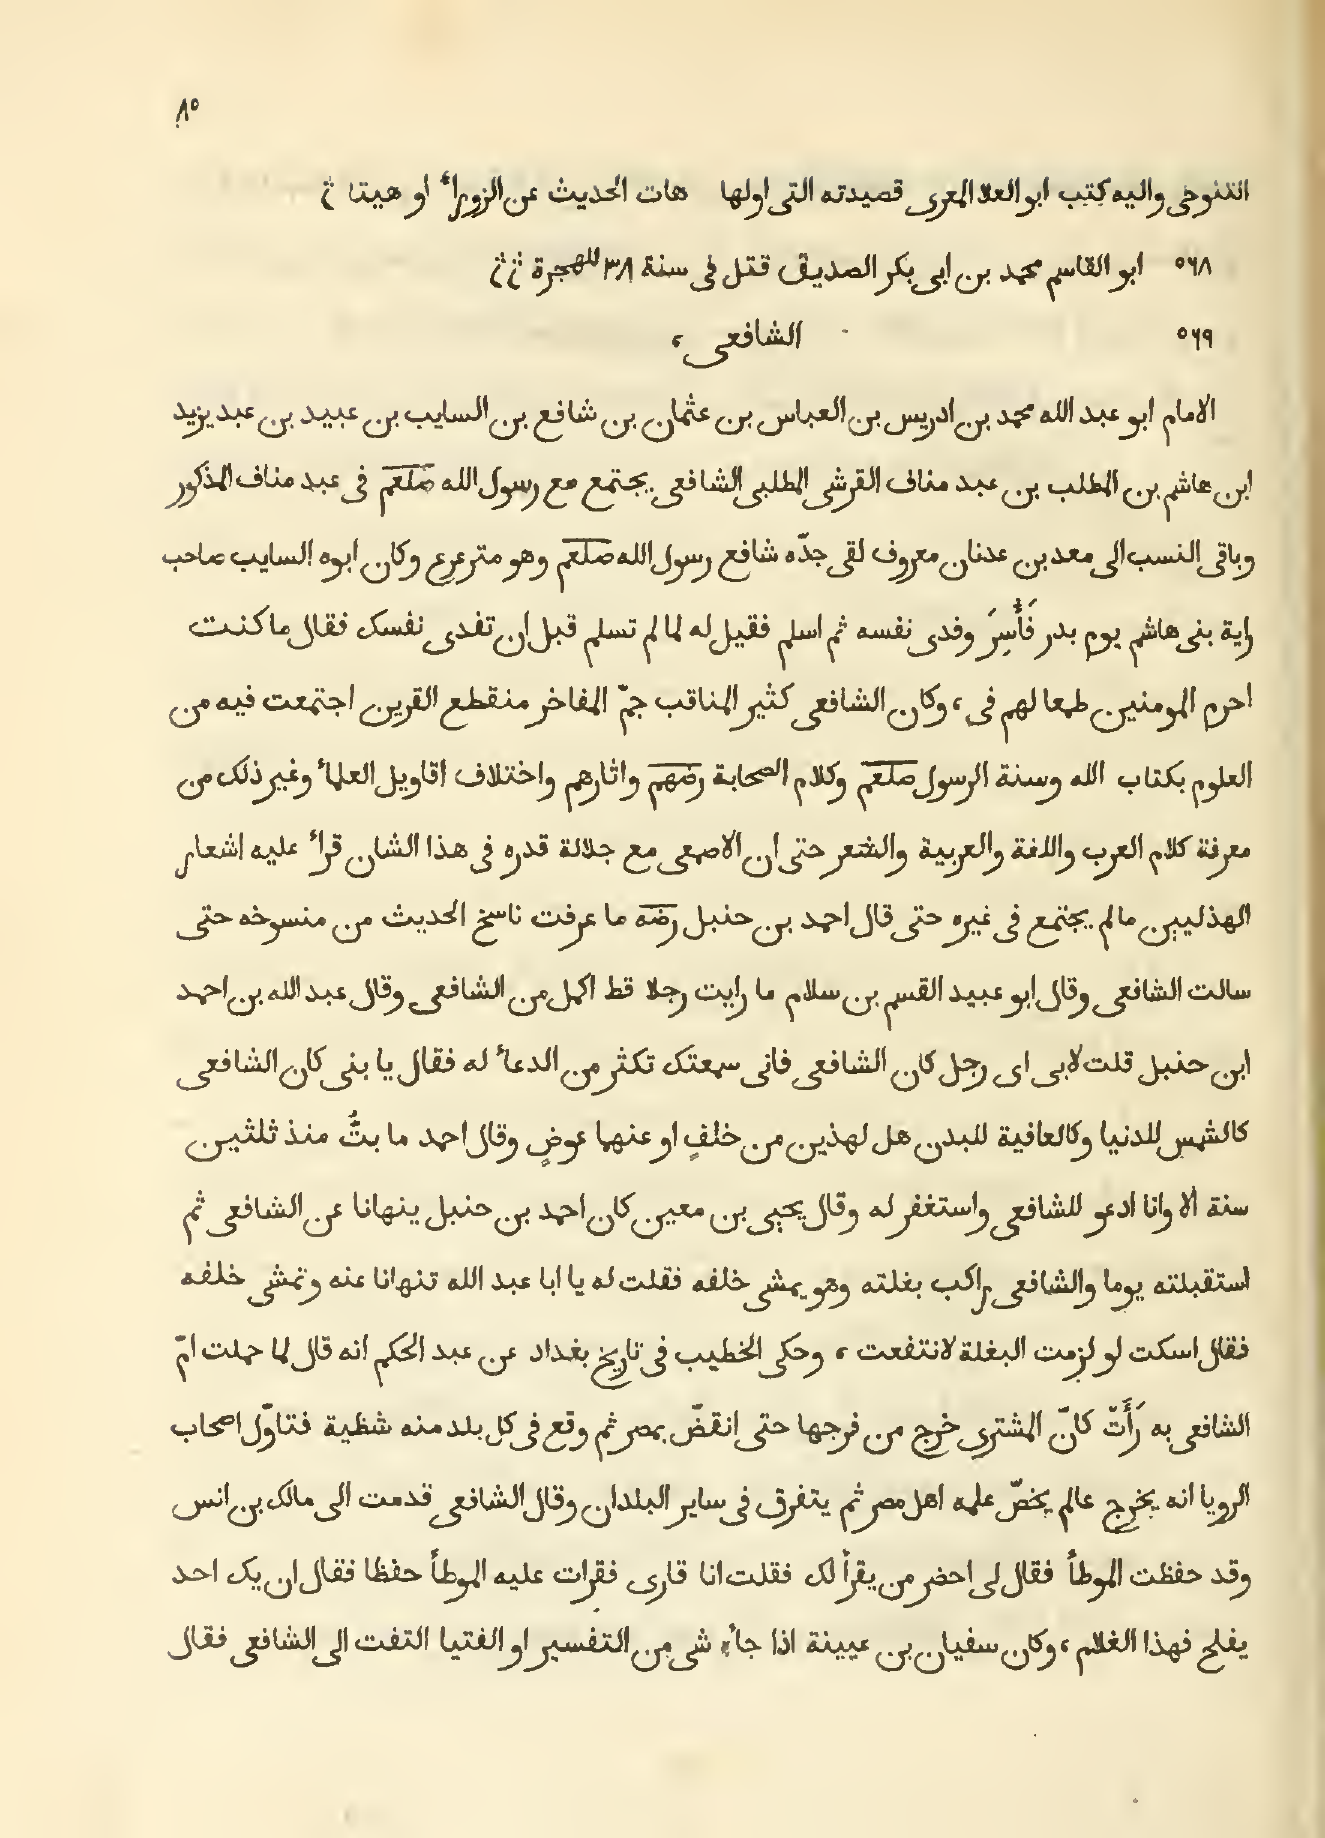 ٨٥
التنوخى واليه كتب ابو العلا المعرى قصيدته التى اولها هات الحديث عن الزوراء او هيتا ۞
٥٦٨ ابو القاسم محمد بن ابى بكر الصديق قتل فى سنة ٣٨ للهجرة ۞۞
٥٦٩ الشافعى ،
الامام ابو عبد الله محمد بن ادريس بن العباس بن عثمان بن شافع بن السايب بن عبيد بن عبد يزيد
ابن هاشم بن المطلب بن عبد مناف القرشى المطلبى الشافعى يجتمع مع رسول الله صلعم فى عبد مناف المذكور
وباقى النسب الى معد بن عدنان معروف لقى جدّه شافع رسول الله صلعم وهو مترعرع وكان ابوه السايب صاحب
راية بنى هاشم يوم بدر فَأُسِرَ وفدى نفسه ثم اسلم فقيل له لما لم تسلم قبل ان تفدى نفسك فقال ما كنت
احرم المومنين طمعا لهم فى ، وكان الشافعى كثير المناقب جمّ المفاخر منقطع القرين اجتمعت فيه من
العلوم بكتاب الله وسنة الرسول صلعم وكلام الصحابة رضهم واثارهم واختلاف اقاويل العلماء وغير ذلك من
معرفة كلام العرب واللغة والعربية والشعر حتى ان الاصمعى مع جلالة قدره فى هذا الشان قراء عليه اشعار
الهذليين ما لم يجتمع فى غيره حتى قال احمد بن حنبل رضه ما عرفت ناسخ الحديث من منسوخه حتى
سالت الشافعى وقال ابو عبيد القسم بن سلام ما رايت رجلا قط اكمل من الشافعى وقال عبد الله بن احمد
ابن حنبل قلت لابى اى رجل كان الشافعى فانى سمعتك تكثر من الدعاء له فقال يا بنى كان الشافعى
كالشمس للدنيا وكالعافية للبدن هل لهذين من خلفٍ او عنهما عوضٍ وقال احمد ما بتُّ منذ ثلثين
سنة الا وانا ادعو للشافعى واستغفر له وقال يحيى بن معين كان احمد بن حنبل ينهانا عن الشافعى ثم
استقبلته يوما والشافعى راكب بغلته وهو يمشى خلفه فقلت له يا ابا عبد الله تنهانا عنه وتمشى خلفه
فقال اسكت لو لزمت البغلة لانتفعت ، وحكى الخطيب فى تاريخ بغداد عن عبد الحكم انه قال لما حملت امّ
الشافعى به رَأَتْ كانّ المشترى خرج من فرجها حتى انقضّ بمصر ثم وقع فى كل بلد منه شظية فتاوّل اصحاب
الرويا انه يخرج عالم يخصّ علمه اهل مصر ثم يتفرق فى ساير البلدان وقال الشافعى قدمت الى مالك بن انس
وقد حفظت الموطأ فقال لى احضر من يقرأ لك فقلت انا قارى فقرات عليه الموطأ حفظا فقال ان يك احد
يفلح فهذا الغلام ، وكان سفيان بن عيينة اذا جاءه شى من التفسير او الفتيا التفت الى الشافعى فقال